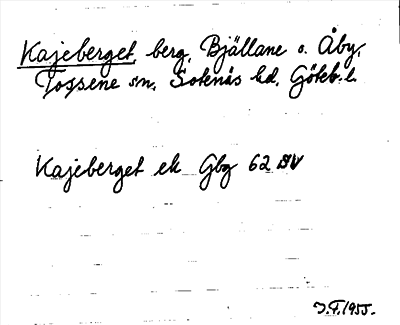 Kajeberget, berg, Bjällane o. Åby,
Tossene sn, Sotenäs hd, Göteb. l.
Kajeberget ek Gbg 62 SV
J.F. 1955.